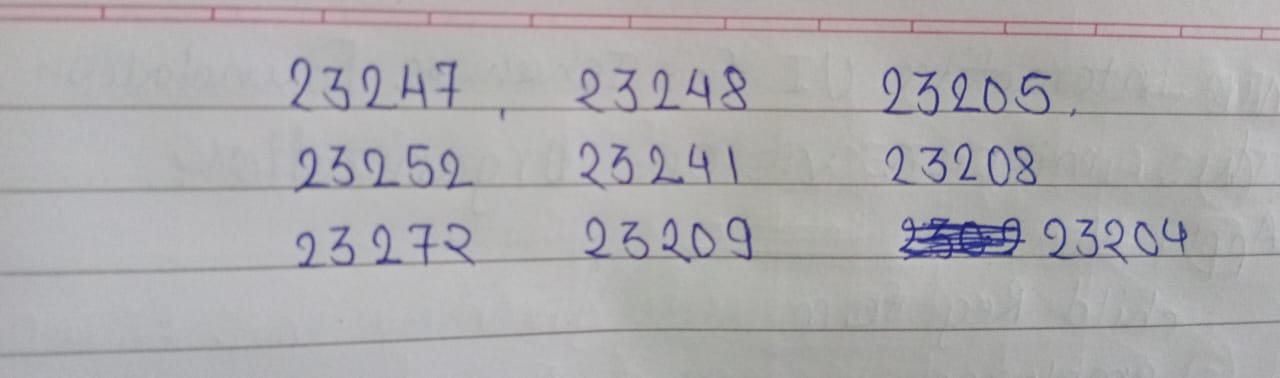 23247, 23248 23205,
23252 23241 23208
23272 23209 23204